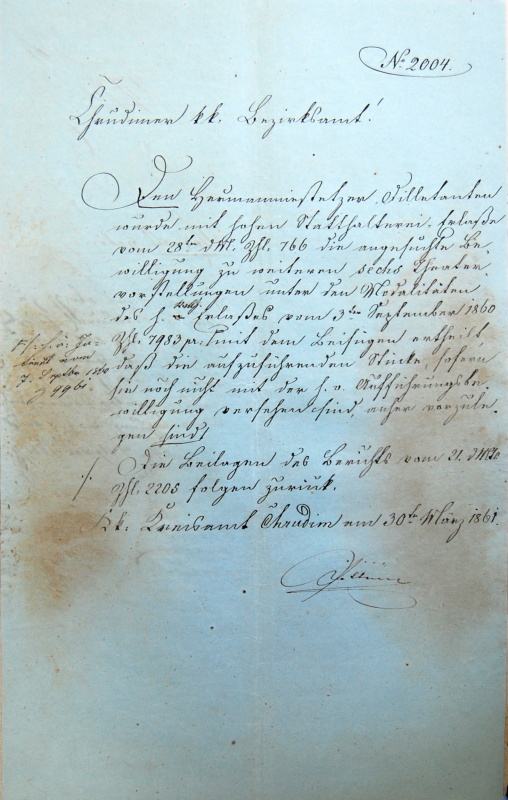 No 2004.
Chrudimer kk. Bezirksamt!
Den Hermannmiestetzer Dilletanten
wurde mit hohen Statthalterei Erlaße
vom 28ten d Mt. Zhl. 766 die angesuchte Be-
willigung zu weiteren sechs Theater-
vorstellungen unter den Modalitäten
des h. Erlaßes vom 3ten September 1860
Zhl. 7983 mit dem Beifügen ertheilt,
daß die aufzuführenden Stücke, sofern
sie noch nicht mit der h. o. Aufführungsbe-
willigung versehen sind, anher vorzule-
gen sind
7. Septbr 1860
Die Beilagen des Berichts vom 21. d Mts
Zhl. 2205 folgen zurück.
Kk. Kreisamt Chrudim am 30ten März 1861.